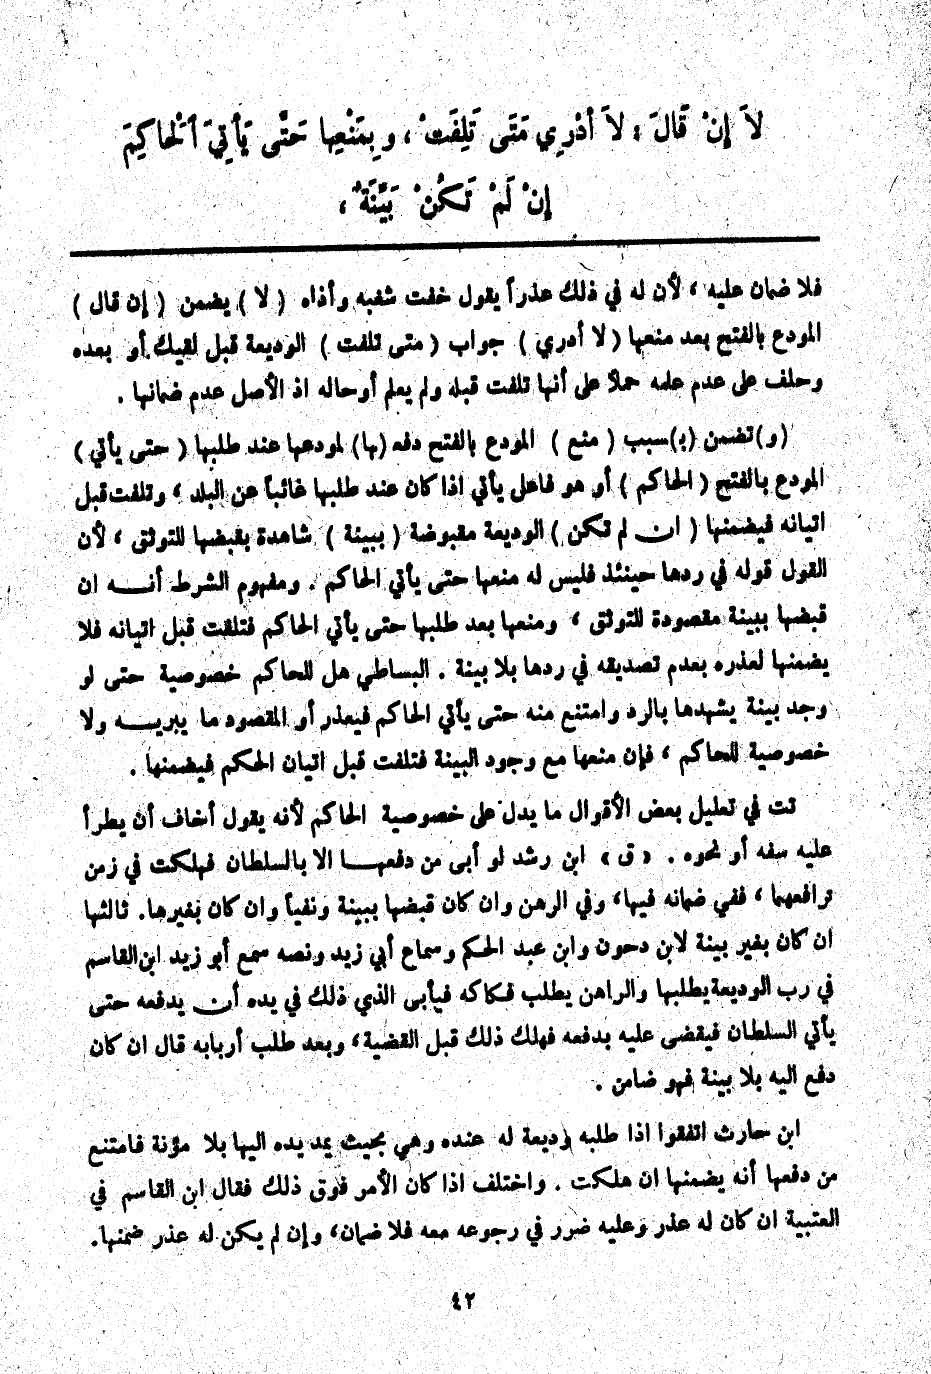 لاَ إِنْ قَالَ : لاَ أَدْرِي مَتَى تَلِفَتْ ، وَبِمَنْعِهَا حَتَّى يَأْتِيَ الْحَاكِمَ
إِنْ لَمْ تَكُنْ بَيِّنَةٌ ،
فلا ضمان عليه ، لأن له في ذلك عذراً يقول خفت شغبه وأذاه ( لا ) يضمن ( إن قال )
المودع بالفتح بعد منعها ( لا أدري ) جواب ( متى تلفت ) الوديعة قبل لقيك أو بعده
وحلف على عدم علمه حملا على أنها تلفت قبله ولم يعلم أوحاله اذ الأصل عدم ضمانها .
( و ) تضمن ( بـ ) سبب ( منع ) المودع بالفتح دفعـ ( ها ) لمودعها عند طلبها ( حتى يأتي )
المودع بالفتح ( الحاكم ) أو هو فاعل يأتي اذا كان عند طلبها غائباً عن البلد ، وتلفت قبل
اتيانه فيضمنها ( ان لم تكن ) الوديعة مقبوضة ( ببينة ) شاهدة بقبضها للتوثق ، لأن
القول قوله في ردها حينئذ فليس له منعها حتى يأتي الحاكم . ومفهوم الشرط أنه ان
قبضها ببينة مقصودة للتوثق ، ومنعها بعد طلبها حتى يأتي الحاكم فتلفت قبل اتيانه فلا
يضمنها لعذره بعدم تصديقه في ردها بلا بينة . البساطي هل للحاكم خصوصية حتى لو
وجد بينة يشهدها بالرد وامتنع منه حتى يأتي الحاكم فيعذر أو المقصود ما يبريه ولا
خصوصية للحاكم ، فإن منعها مع وجود البينة فتلفت قبل اتيان الحكم فيضمنها .
تت في تعليل بعض الأقوال ما يدل على خصوصية الحاكم لأنه يقول أخاف أن يطرأ
عليه سفه أو نحوه . « ق » ابن رشد لو أبى من دفعها الا بالسلطان فهلكت في زمن
ترافعهما ، ففي ضمانه فيها، وفي الرهن وان كان قبضها ببينة ونفياً وان كان بغيرها. ثالثها
ان كان بغير بينة لابن دحون وابن عبد الحكم وسماع أبي زيد ونصه سمع أبو زيد ابن القاسم
في رب الوديعة يطلبها والراهن يطلب فكاكه فيأبى الذي ذلك في يده أن يدفعه حتى
يأتي السلطان فيقضى عليه بدفعه فهلك ذلك قبل القضية، وبعد طلب أربابه قال ان كان
دفع اليه بلا بينة فهو ضامن .
ابن حارث اتفقوا اذا طلبه وديعة له عنده وهي بحيث يمد يده اليها بلا مؤنة فامتنع
من دفعها أنه يضمنها ان هلكت . واختلف اذا كان الأمر فوق ذلك فقال ابن القاسم في
العتبية ان كان له عذر وعليه ضرر في رجوعه معه فلا ضمان، وإن لم يكن له عذر ضمنها.
٤٢